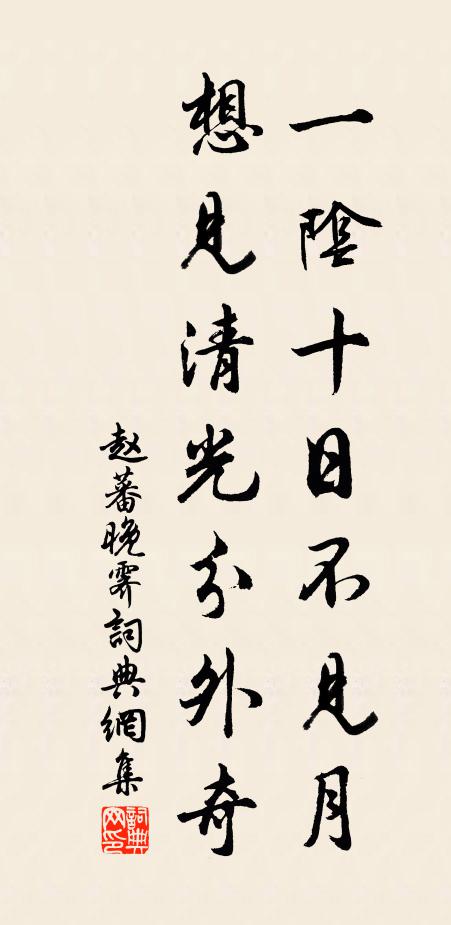 一陰十日不見月
想見清光分外奇
赵蕃晚霁詞典網集
詞典网印